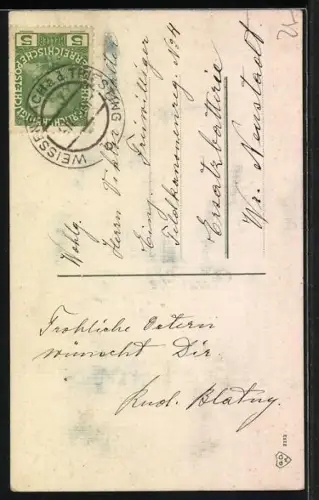 5 5
HELLER
WEISSENBACH a. d. TRIESTING
Wohlg.
Herrn
Einj. Freiwilliger
Feldkanonenreg. № 4
Ersatzbatterie
Wr. Neustadt
Fröhliche Ostern
wünscht Dir
Rud. Blatny.